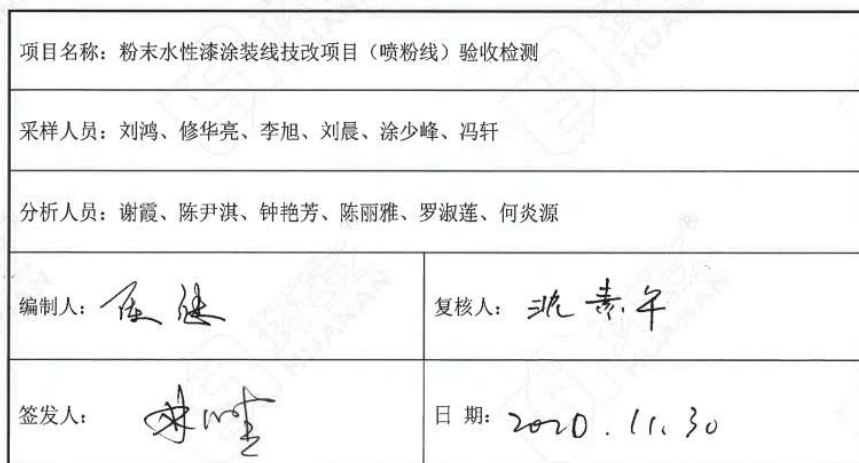 项目名称：粉末水性漆涂装线技改项目（喷粉线）验收检测
采样人员：刘鸿、修华亮、李旭、刘晨、涂少峰、冯轩
分析人员：谢霞、陈尹淇、钟艳芳、陈丽雅、罗淑莲、何炎源
编制人：
复核人：沈素午
签发人：
日 期：2020.11.30